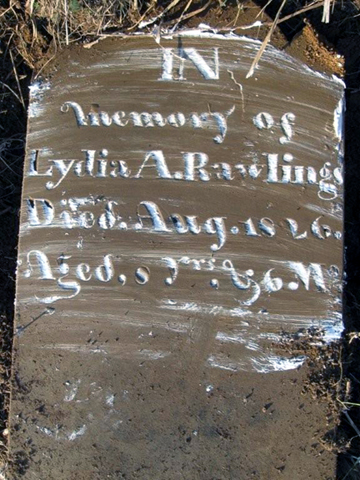 IN
memory of
Lydia A. Rawlings
Died. Aug. 1826.
Aged, & 6. Ms